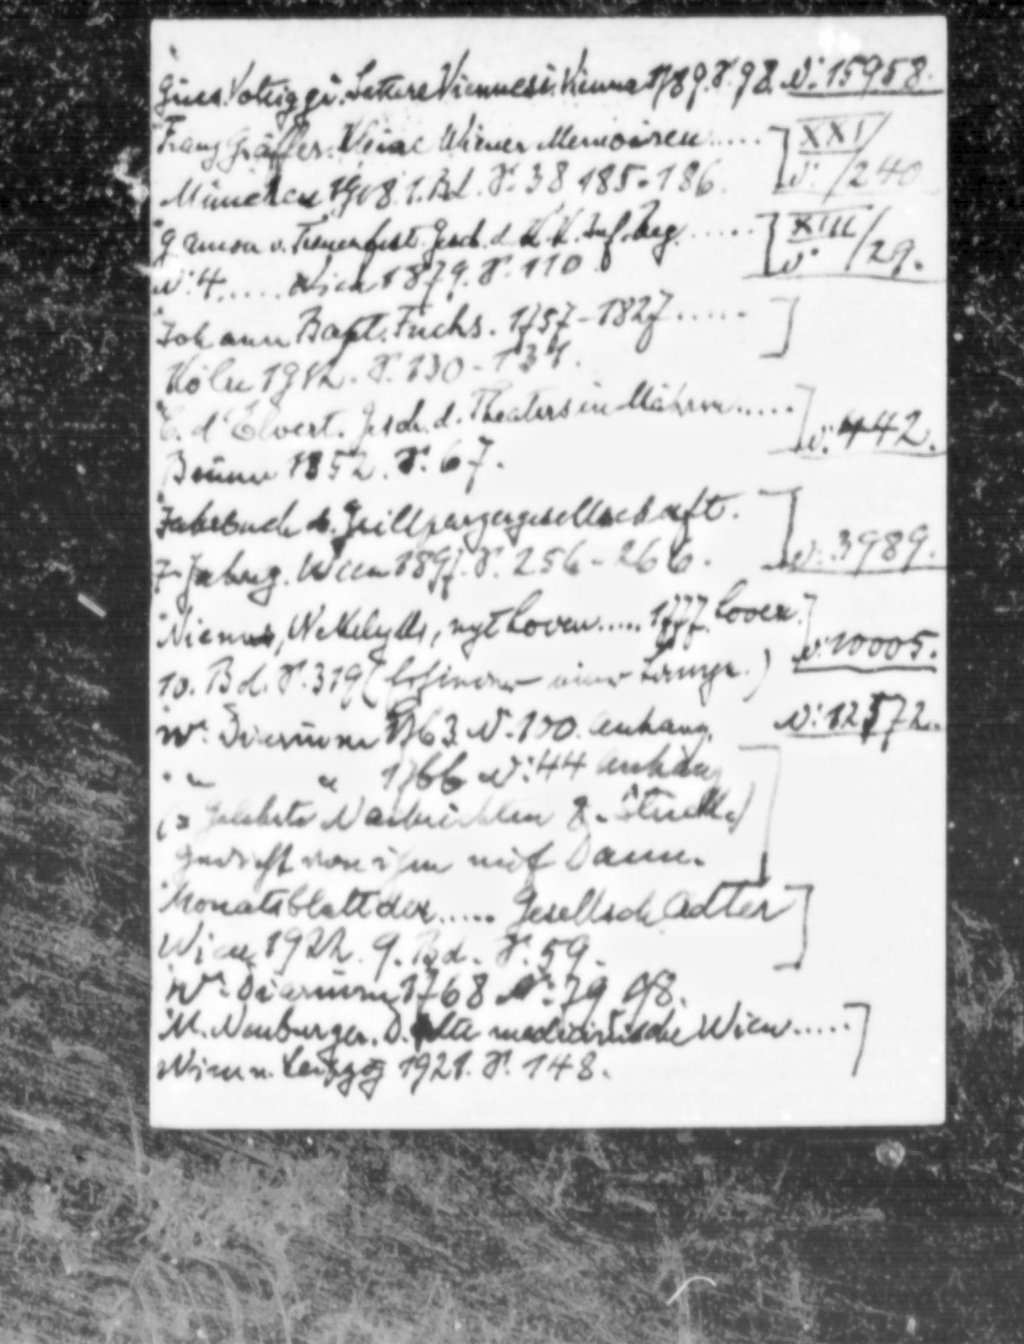 Gius. Voltiggi. Lettere Viennesi. Vienna 1789. S. 98. N: 15958.
Franz Gräffer. Kleine Wiener Memoiren..... XXI/
München 1908. 1. Bd. S. 38 185-186. N: /240
v. Treuenfest. Gesch. d. K. K. Inf. Reg. ..... XIII/
N: 4..... Wien 1879. S. 110. N: /29.
Johann Bapt. Fuchs. 1757-1827.....
Köln 1912. S. 130-134.
C. d'Elvert. Gesch. d. Theaters in Mähren.....
Brünn 1852. S. 67. N: 442.
Jahrbuch d. Grillparzergesellschaft.
7. Jahrg. Wien 1897. S. 256-266. N: 3989.
..... 1777
10. Bd. S. 319 N: 10005.
W. Diarium 1763 N. 100. Anhang. N: 12572.
" " 1766 N: 44 Anhang
(= Gelehrte Nachrichten 8. Stück)
Gedicht von ihm auf Daun.
Monatsblatt der..... Gesellsch. Adler
Wien 1922. 9. Bd. S. 59.
W. Diarium 1768 N: 79 98.
M. Neuburger. D. alte medicinische Wien.....
Wien u. Leipzig 1921. S. 148.